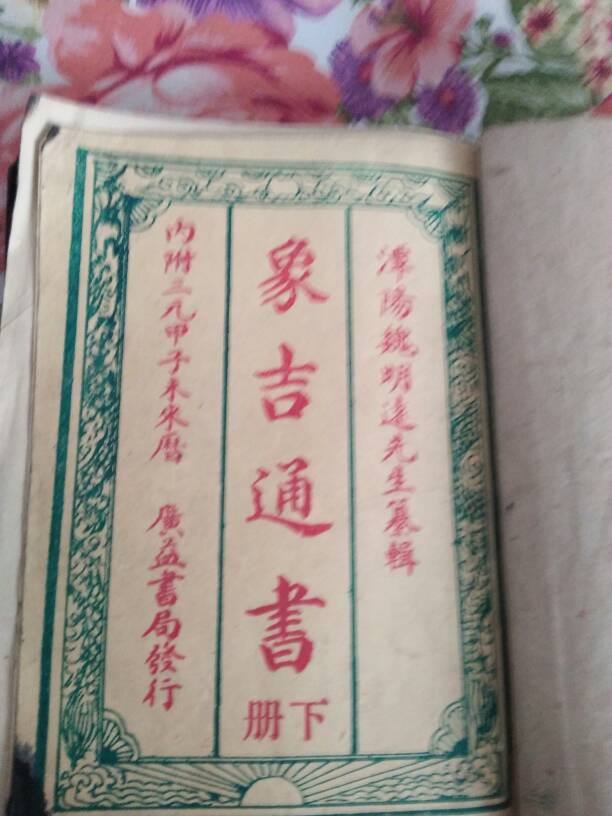 潭陽魏明遠先生纂輯
象吉通書
下册
内附三元甲子未來曆 廣益書局發行